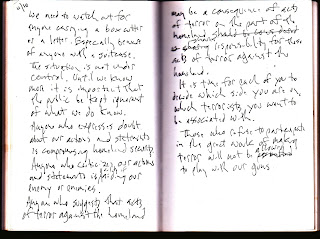 We need to watch out for
anyone carrying a box cutter
or a letter. Especially beware
of anyone with a suitcase.
The situation is not under
control. Until we know
more it is important that
the public be kept ignorant
of what we do know.
Anyone who expresses doubt
about our actions and statements
is compromising homeland security.
Anyone who criticizes our actions
and statements is aiding our
enemy or enemies.
Anyone who suggests that acts
of terror against the homeland
may be a consequence of acts
of terror on the part of the
homeland should be
responsibility for those
acts of terror against the
homeland.
It is time for each of you to
decide which side you are on,
which terrorists you want to
be associated with.
Those who refuse to participate
in this great work of making
terror will not be allowed
to play with our guns